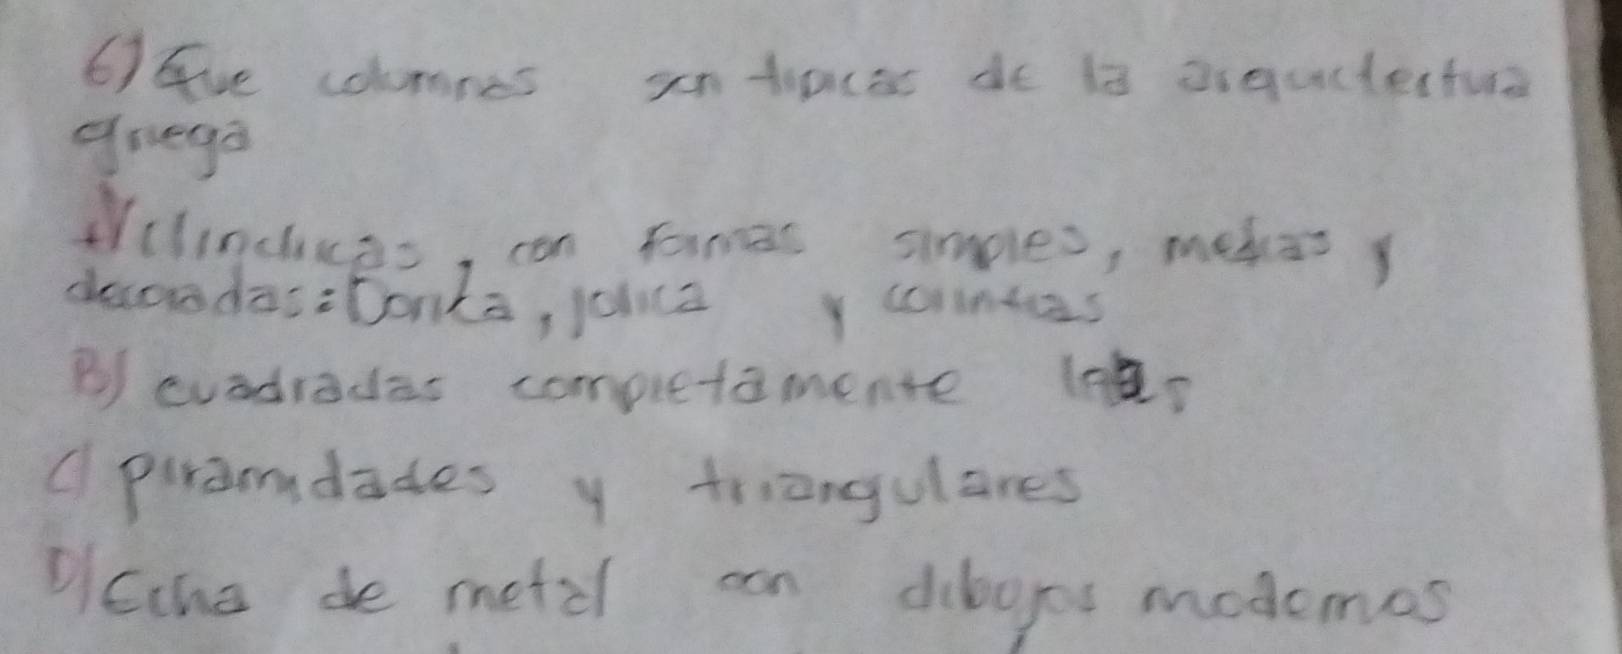 6) Que columnas son tipicas de la arquictectura
griega
A) cilindricas, con formas simples, medias y
decoradas: Dorica, jolica y corintias
B) cuadradas completamente
C) piramidades y triangulares
D) Echa de metal con dibojos modernos